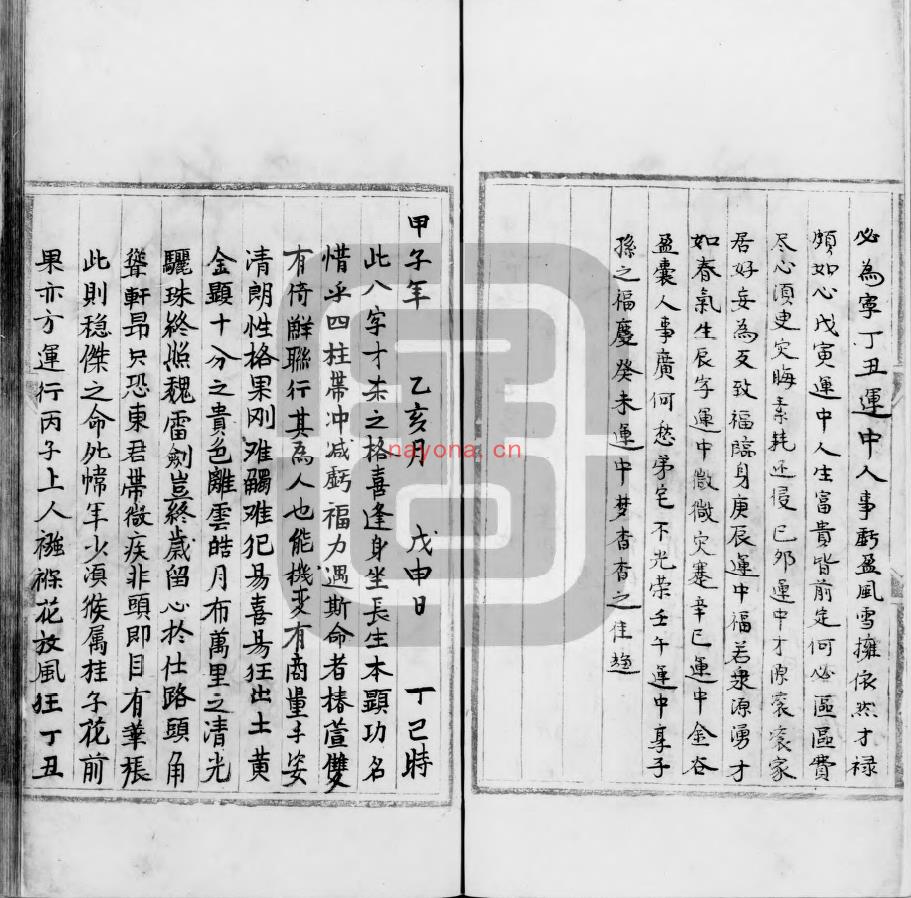 必為寧丁丑運中人事虧盈風雪擁依然才祿
頗如心戊寅運中人生富貴皆前定何必區區費
尽心須史灾晦素耗还侵己卯運中才源衮衮家
居好妄為支致福臨身庚辰運中福若泉源湧才
如春氣生辰字運中微微灾蹇辛巳運中金谷
盈囊人事廣何愁苐宅不光荣壬午運中享子
孫之福慶癸未運中梦杳杳之佳趣
甲子年 乙亥月 戊申日 丁巳時
此八字才杀之格喜逢身坐長生本顯功名
惜乎四柱帶冲减虧福力遇斯命者椿萱雙
有倚鮮聯行其為人也能機变有商量丰姿
清朗性格果刚难觸难犯易喜易狂出土黄
金顯十分之貴色離雲皓月布萬里之清光
驪珠終照魏雷劍豈終歲留心扵仕路頭角
聳軒昂只恐東君帶微疾非頭即目有華張
此則稳傑之命死幃年少須猴属桂子花前
果亦方運行丙子上人襁褓花放風狂丁丑
nayona.cn